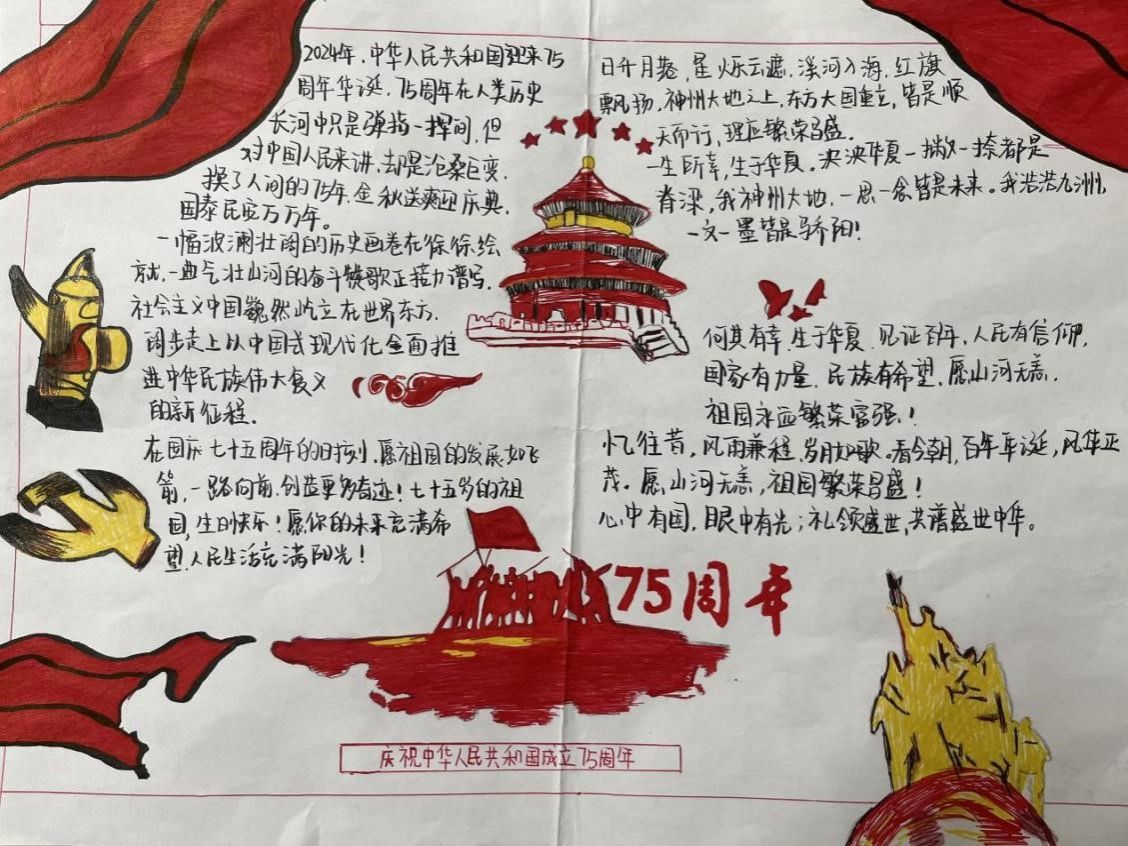 2024年，中华人民共和国迎来75
周年华诞，75周年在人类历史
长河中只是弹指一挥间，但
对中国人民来讲，却是沧桑巨变，
换了人间的75年。金秋送爽迎庆典，
国泰民安万万年。
一幅波澜壮阔的历史画卷在徐徐绘
就，一曲气壮山河的奋斗赞歌正接力谱写，
社会主义中国巍然屹立在世界东方，
阔步走上以中国式现代化全面推
进中华民族伟大复兴
的新征程。
在国庆七十五周年的时刻，愿祖国的发展如飞
箭，一路向前，创造更多奇迹！七十五岁的祖
国，生日快乐！愿你的未来充满希
望，人民生活充满阳光！
日升月卷，星烁云遮，溪河入海，红旗
飘扬，神州大地之上，东方大国重立，皆是顺
天而行，理应繁荣昌盛。
一生所幸，生于华夏。泱泱华夏一撇一捺都是
脊梁，我神州大地，一思一念皆是未来。我浩浩九洲，
一文一墨皆是骄阳！
何其有幸，生于华夏，见证百年，人民有信仰，
国家有力量，民族有希望，愿山河无恙，
祖国永远繁荣富强！
忆往昔，风雨兼程，岁月如歌。看今朝，百年华诞，风华正
茂。愿山河无恙，祖国繁荣昌盛！
心中有国，眼中有光；礼颂盛世，共谱盛世中华。
75周年
庆祝中华人民共和国成立75周年